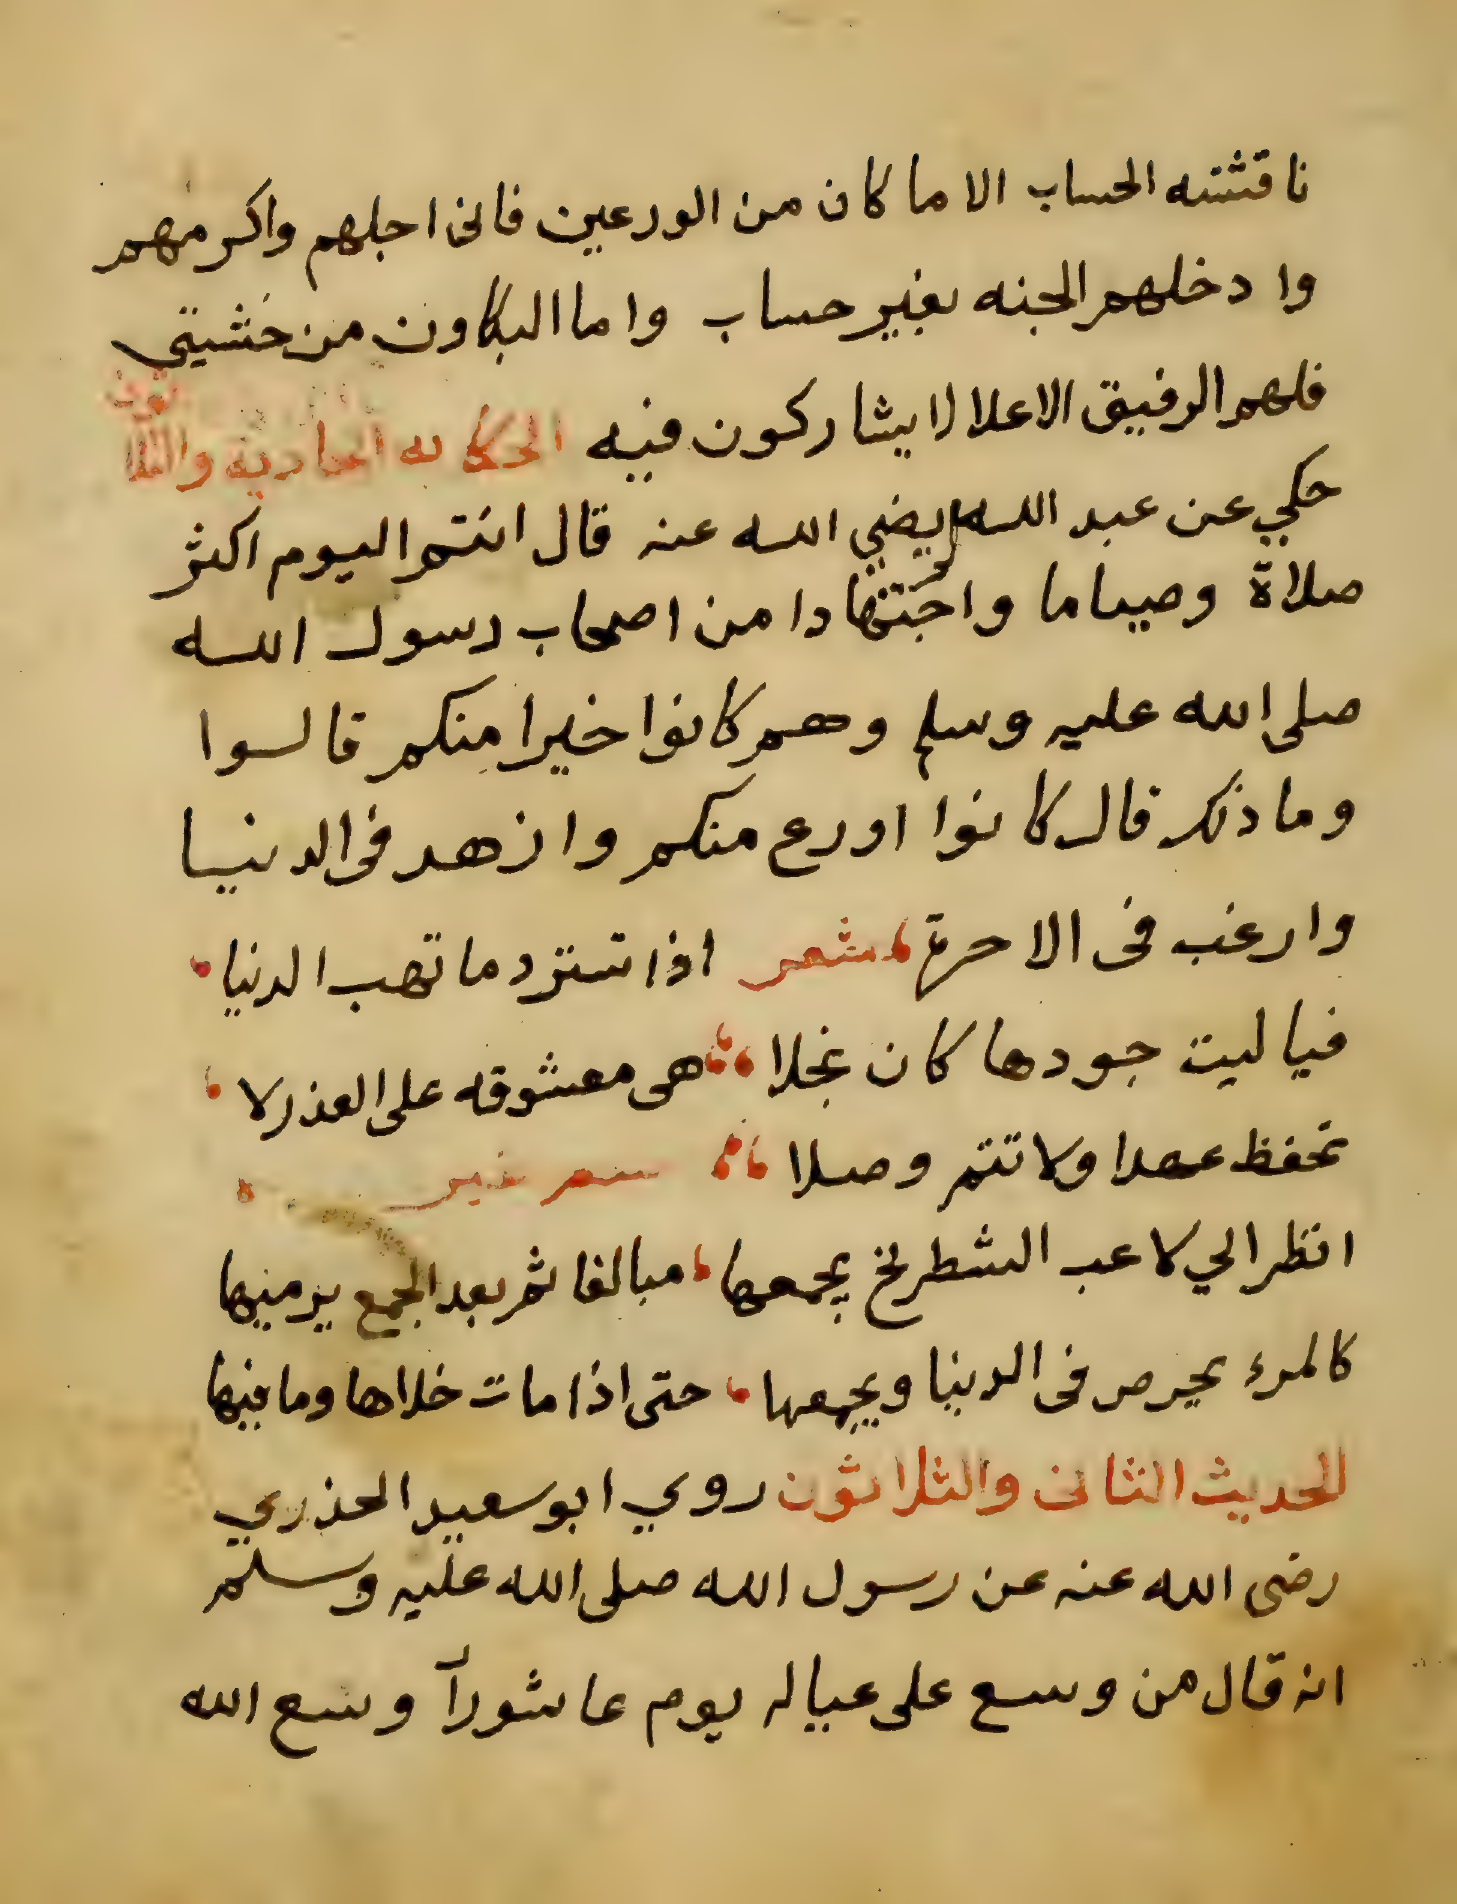 ناقشته الحساب الا ما كان من الورعين فانى اجلهم واكرمهم
وا دخلهم الجنه بغير حساب واما البكاون من خشيتي
فلهم الرفيق الاعلا لا يشاركون فيه الحكايه الحادية والثلاثون
حكي عن عبد الله رضي الله عنه قال انتم اليوم اكثر
صلاة وصياما واجتهادا من اصحاب رسول الله
صلى الله عليه وسلم وهم كانوا خيرا منكم قالوا
وما ذلك قال كانوا اورع منكم وازهد فى الدنيا
وارغب فى الاخرة شعر اذا تسترد ما تهب الدنيا
فيا ليت جودها كان بخلا هى معشوقه على الغدر لا
تحفظ عهدا ولا تتم وصلا شعر غير
انظر الي لاعب الشطرنج يجمعها مبالغا ثم بعد الجمع يرميها
كالمرء يحرص فى الدنيا ويجمعها حتى اذا مات خلاها وما فيها
الحديث الثانى والثلاثون روي ابو سعيد الخدري
رضى الله عنه عن رسول الله صلى الله عليه وسلم
انه قال من وسع على عياله يوم عاشورآ وسع الله